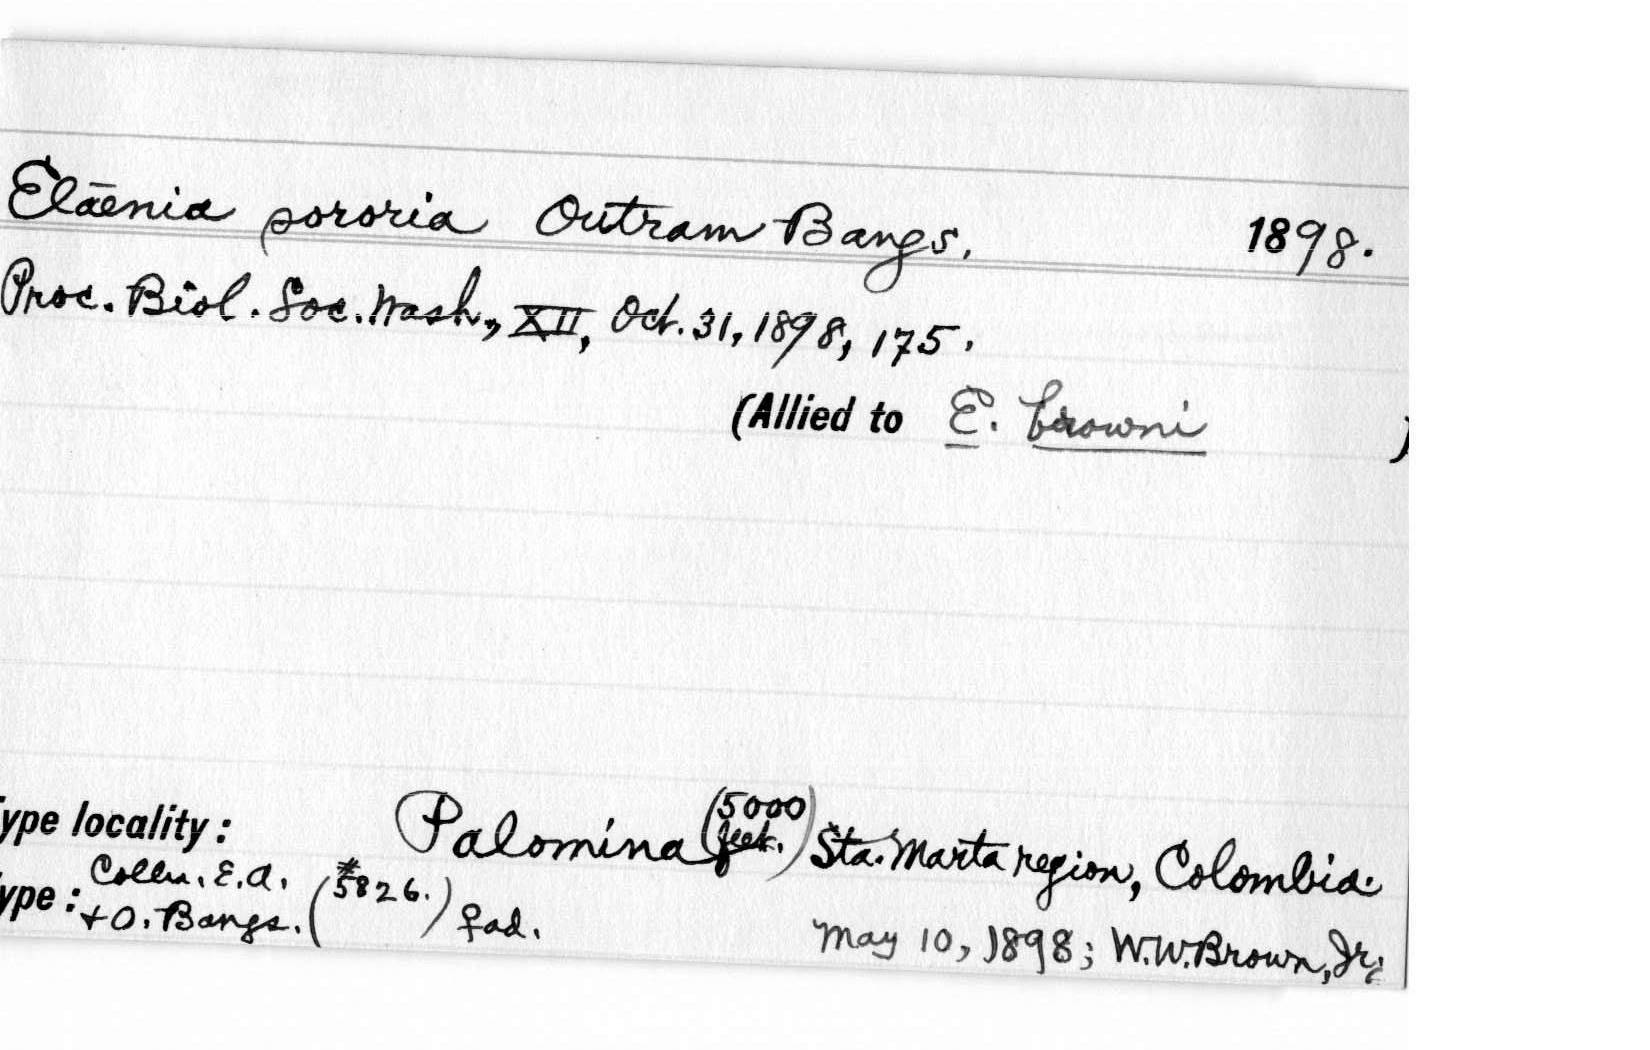 Elāenia sororia Outram Bangs. 1898.
Proc. Biol. Soc. Wash., XII, Oct. 31, 1898, 175.
(Allied to E. browni )
ype locality: Palomina (5000 feet.) Sta. Marta region, Colombia.
ype: Colln. E.A. + O. Bangs. (#5826.) ♀ad. May 10, 1898; W.W. Brown, Jr.